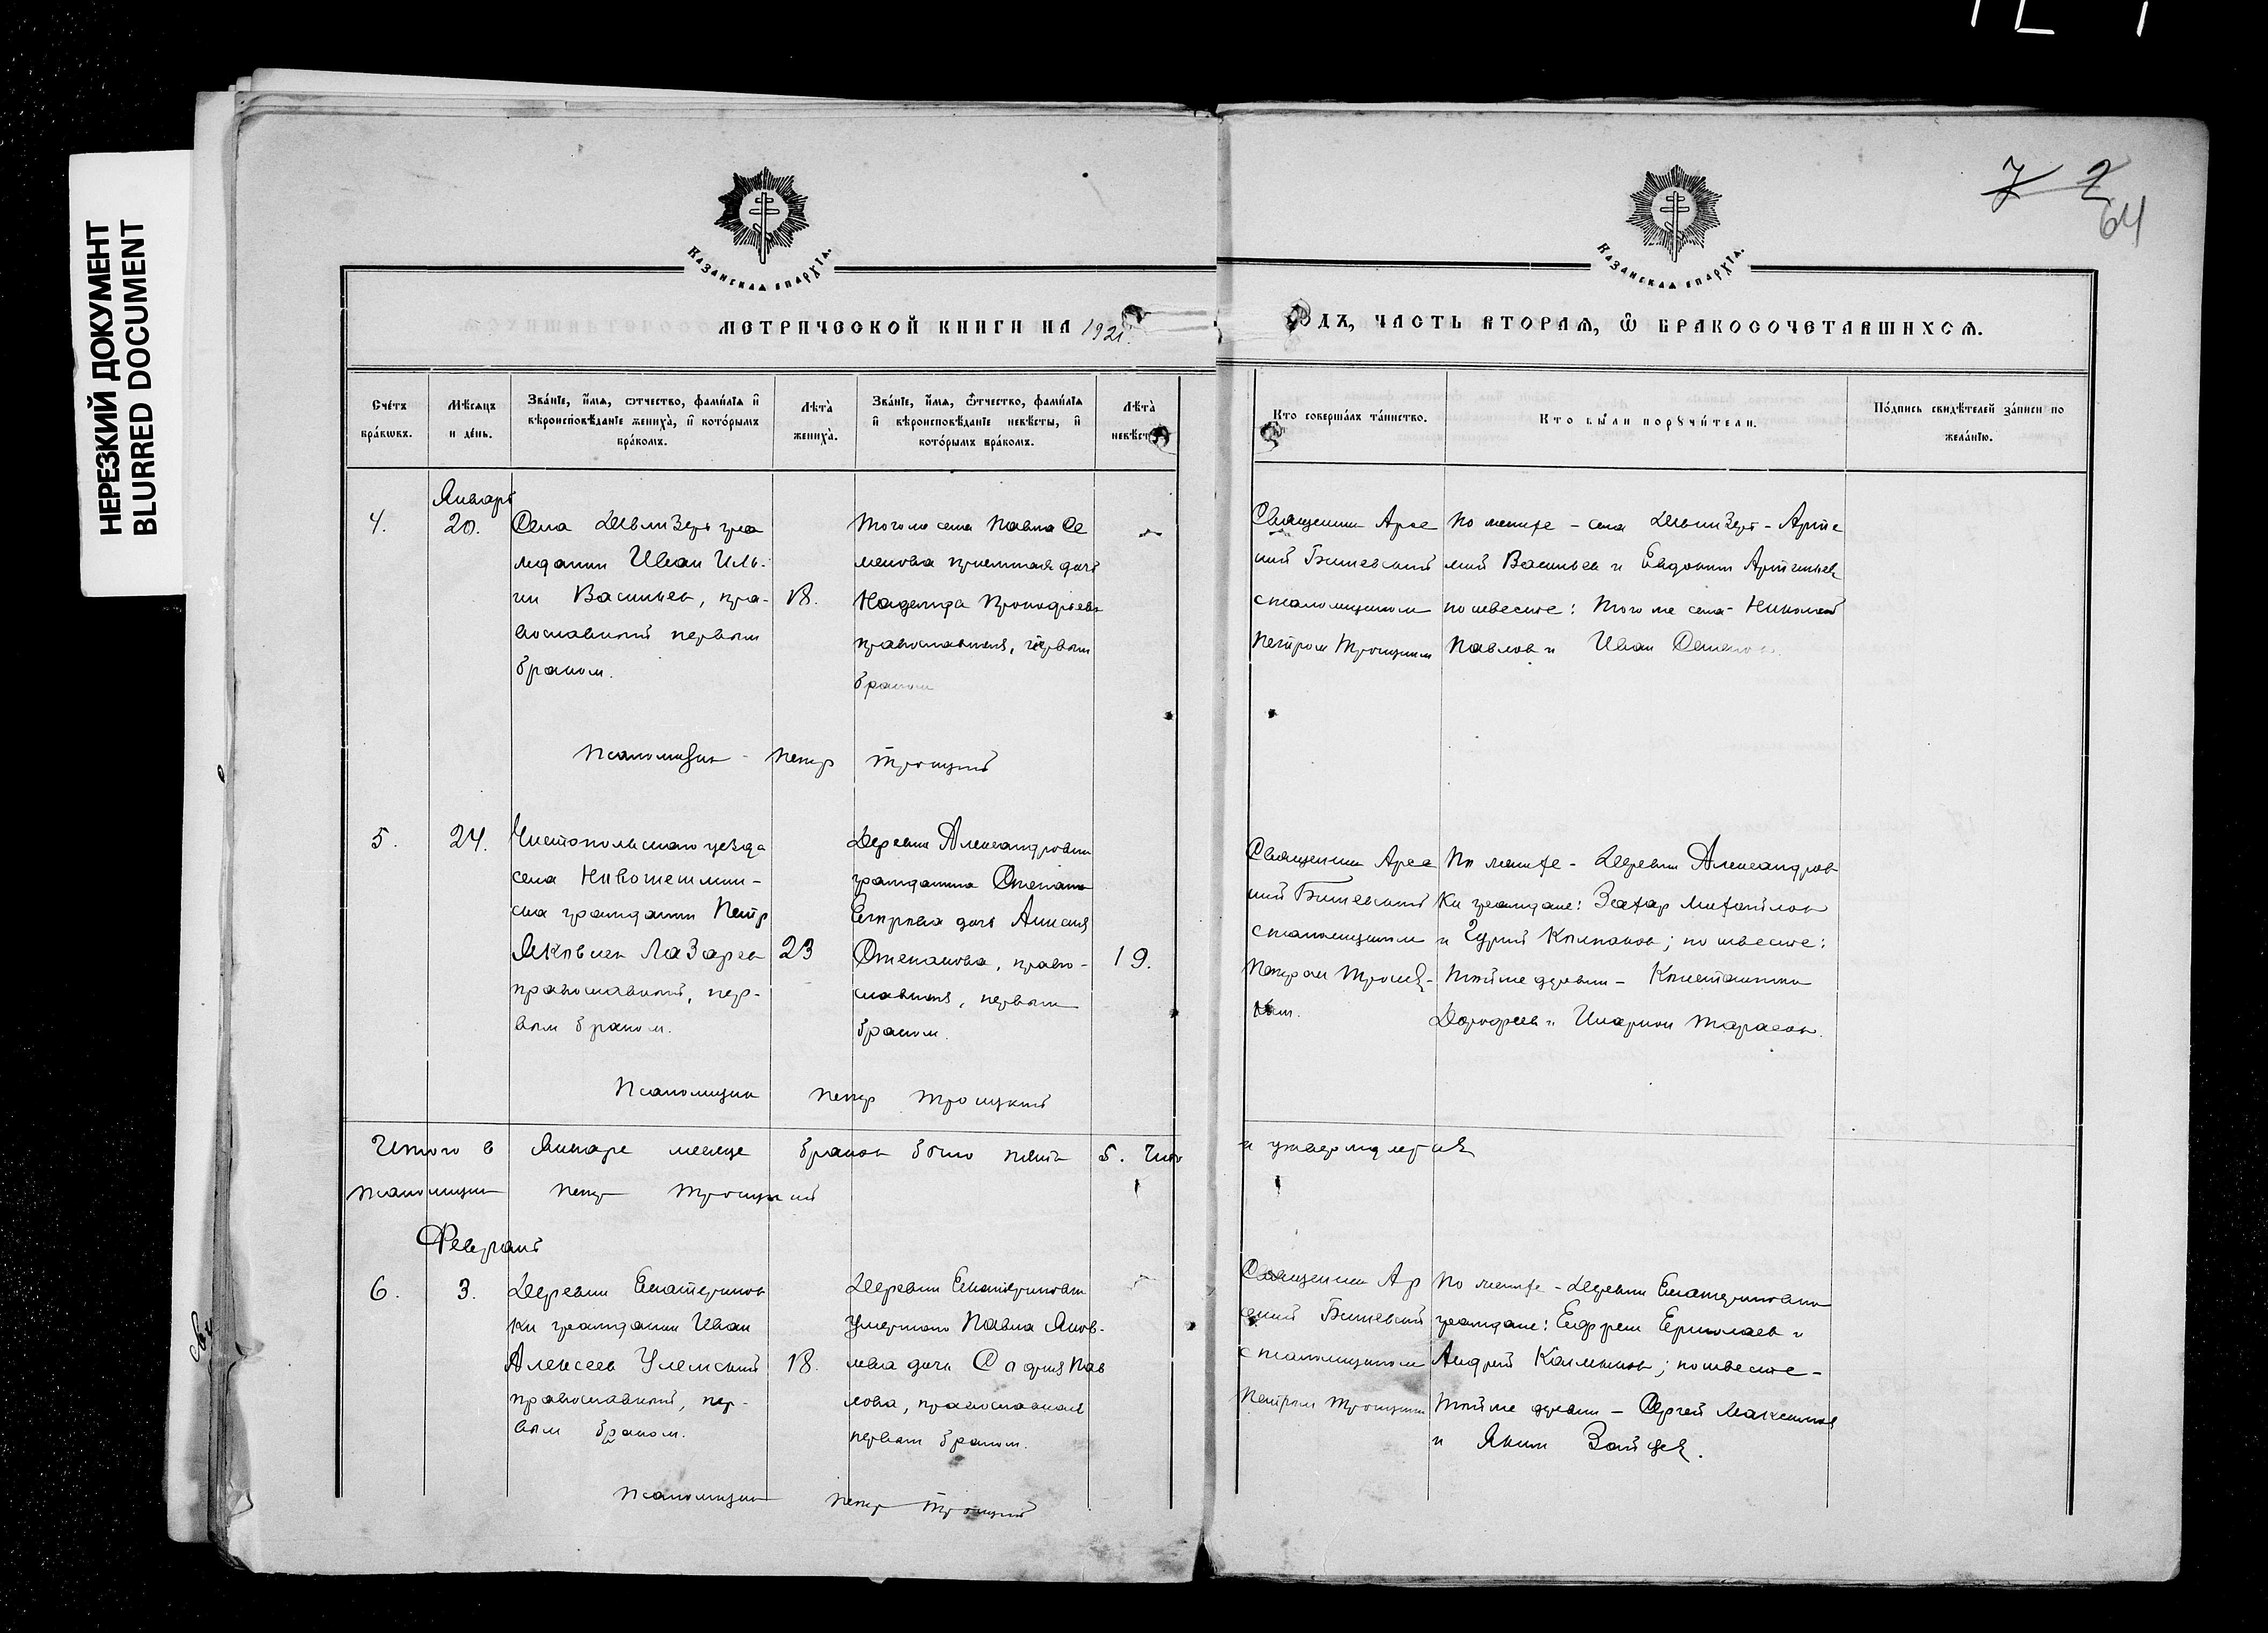 НЕРЕЗКИЙ ДОКУМЕНТ
BLURRED DOCUMENT
7 2
64
Казанская епархїа.
Казанская епархїа.
МЕТРИЧЕСКОЙ КНИГИ НА 1921
ОДЪ, ЧАСТЬ ВТОРАѦ, Ѽ БРАКОСОЧЕТАВШИХСѦ.
Счетъ браковъ.
Мѣсяцъ и день.
Званіе, имя, отчество, фамилія и вѣроисповѣданіе жениха, и которымъ бракомъ.
Лѣта жениха.
Званіе, имя, отчество, фамилія и вѣроисповѣданіе невѣсты, и которымъ бракомъ.
Лѣта невѣст
Кто совершалъ таинство.
Кто были поручители.
Подпись свидѣтелей записи по желанію.
Январь
4.
20.
Села гра
жданин Иван Иль-
ин Васильев, пра-
вославный первым
браком.
18.
Того же села Павла Се
менова приемная дочь
Надежда Прокофьева
православная, первым
браком
Священник Арсе
ний
с псаломщиком
Петром Троицким
По женихе - села - Арте
мий Васильев и Евдоким Артемьев
по невесте: того же села - Николай
Павлов и Иван Семенов.
Псаломщик - Петр Троицкий
5.
24.
Чистопольского уезда
села
ска гражданин Петр
Яковлев Лазарев
православный, пер-
вым браком.
23
Деревни Александровки
гражданина Степана
Егорова дочь Анисия
Степанова, право-
славная, первым
браком.
19.
Священник Арсе
ний
с псаломщиком
Петром Троиц-
ким.
По женихе - Деревни Александров
ки граждане: Захар Михайлов
и Гурий Колпаков; по невесте:
той же деревни - Константин
Дорофеев и Иларион Тарасов.
Псаломщик Петр Троицкий
Итого в Январе месяце браков было пять 5. Что
и утверждается
Псаломщик Петр Троицкий
Февраль
6.
3.
Деревни Екатеринов
ки гражданин Иван
Алексеев Улемский
православный, пер-
вым браком.
18.
Деревни Екатериновки
умершего Павла Яков-
лева дочь София Пав
лова, православная
первым браком.
Священник Ар
сений
с псаломщиком
Петром Троицким
По женихе - Деревни Екатериновки
граждане: Ефрем Ермолаев и
Андрей Калмыков; по невесте -
той же деревни - Сергей Максимов
и Яким Зайцев.
Псаломщик Петр Троицкий